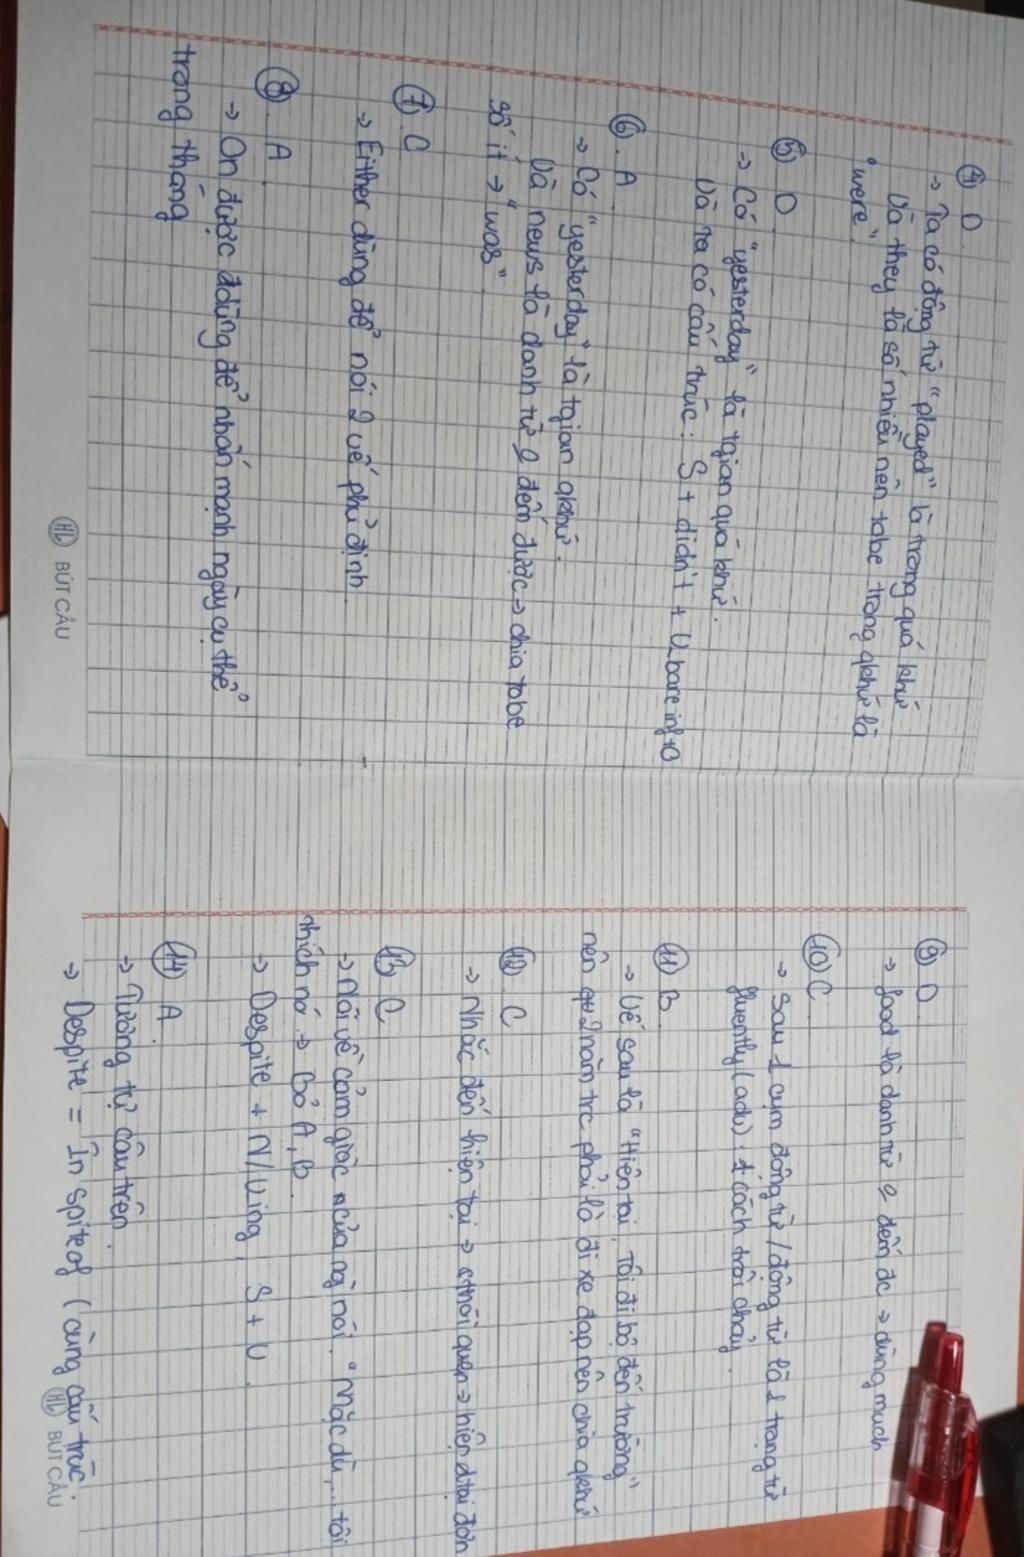 ④ D.
→ Ta có động từ "played" là trong quá khứ
Và they là số nhiều nên tobe trong qkhứ là
"were".
⑤ D
→ Có "yesterday" là tgian quá khứ.
Và ta có cấu trúc: S + didn't + V bare inf + O
⑥. A
→ Có "yesterday" là tgian qkhứ.
Và news là danh từ đếm được → chia tobe
số ít → "was"
⑦. C
→ Either dùng để nói 2 vế phủ định.
⑧. A
→ On được dùng để nhấn mạnh ngày cụ thể
trong tháng
HL BÚT CÂU
⑨ D
→ food là danh từ đếm đc → dùng much
⑩ C
→ Sau 1 cụm động từ / động từ là 1 trạng từ
fluently (adv): 1 cách trôi chảy.
⑪ B
→ Vế sau là "Hiện tại, tôi đi bộ đến trường"
nên 2 năm trc phải là đi xe đạp nên chia qkhứ
⑫ C
→ Nhắc đến hiện tại → thói quen → hiện tại đơn
⑬ C
→ Nói về cảm giác của ng nói. "Mặc dù,... tôi
thích nó → Bỏ A, B.
→ Despite + N/Ving, S + V.
⑭ A.
→ Tương tự câu trên.
→ Despite = In spite of (cùng cấu trúc).
HL BÚT CÂU